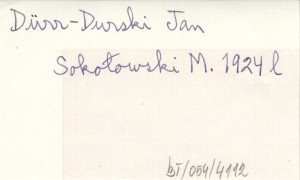 Dürr-Durski Jan
Sokołowski M. 1924 l
bI/054/4112